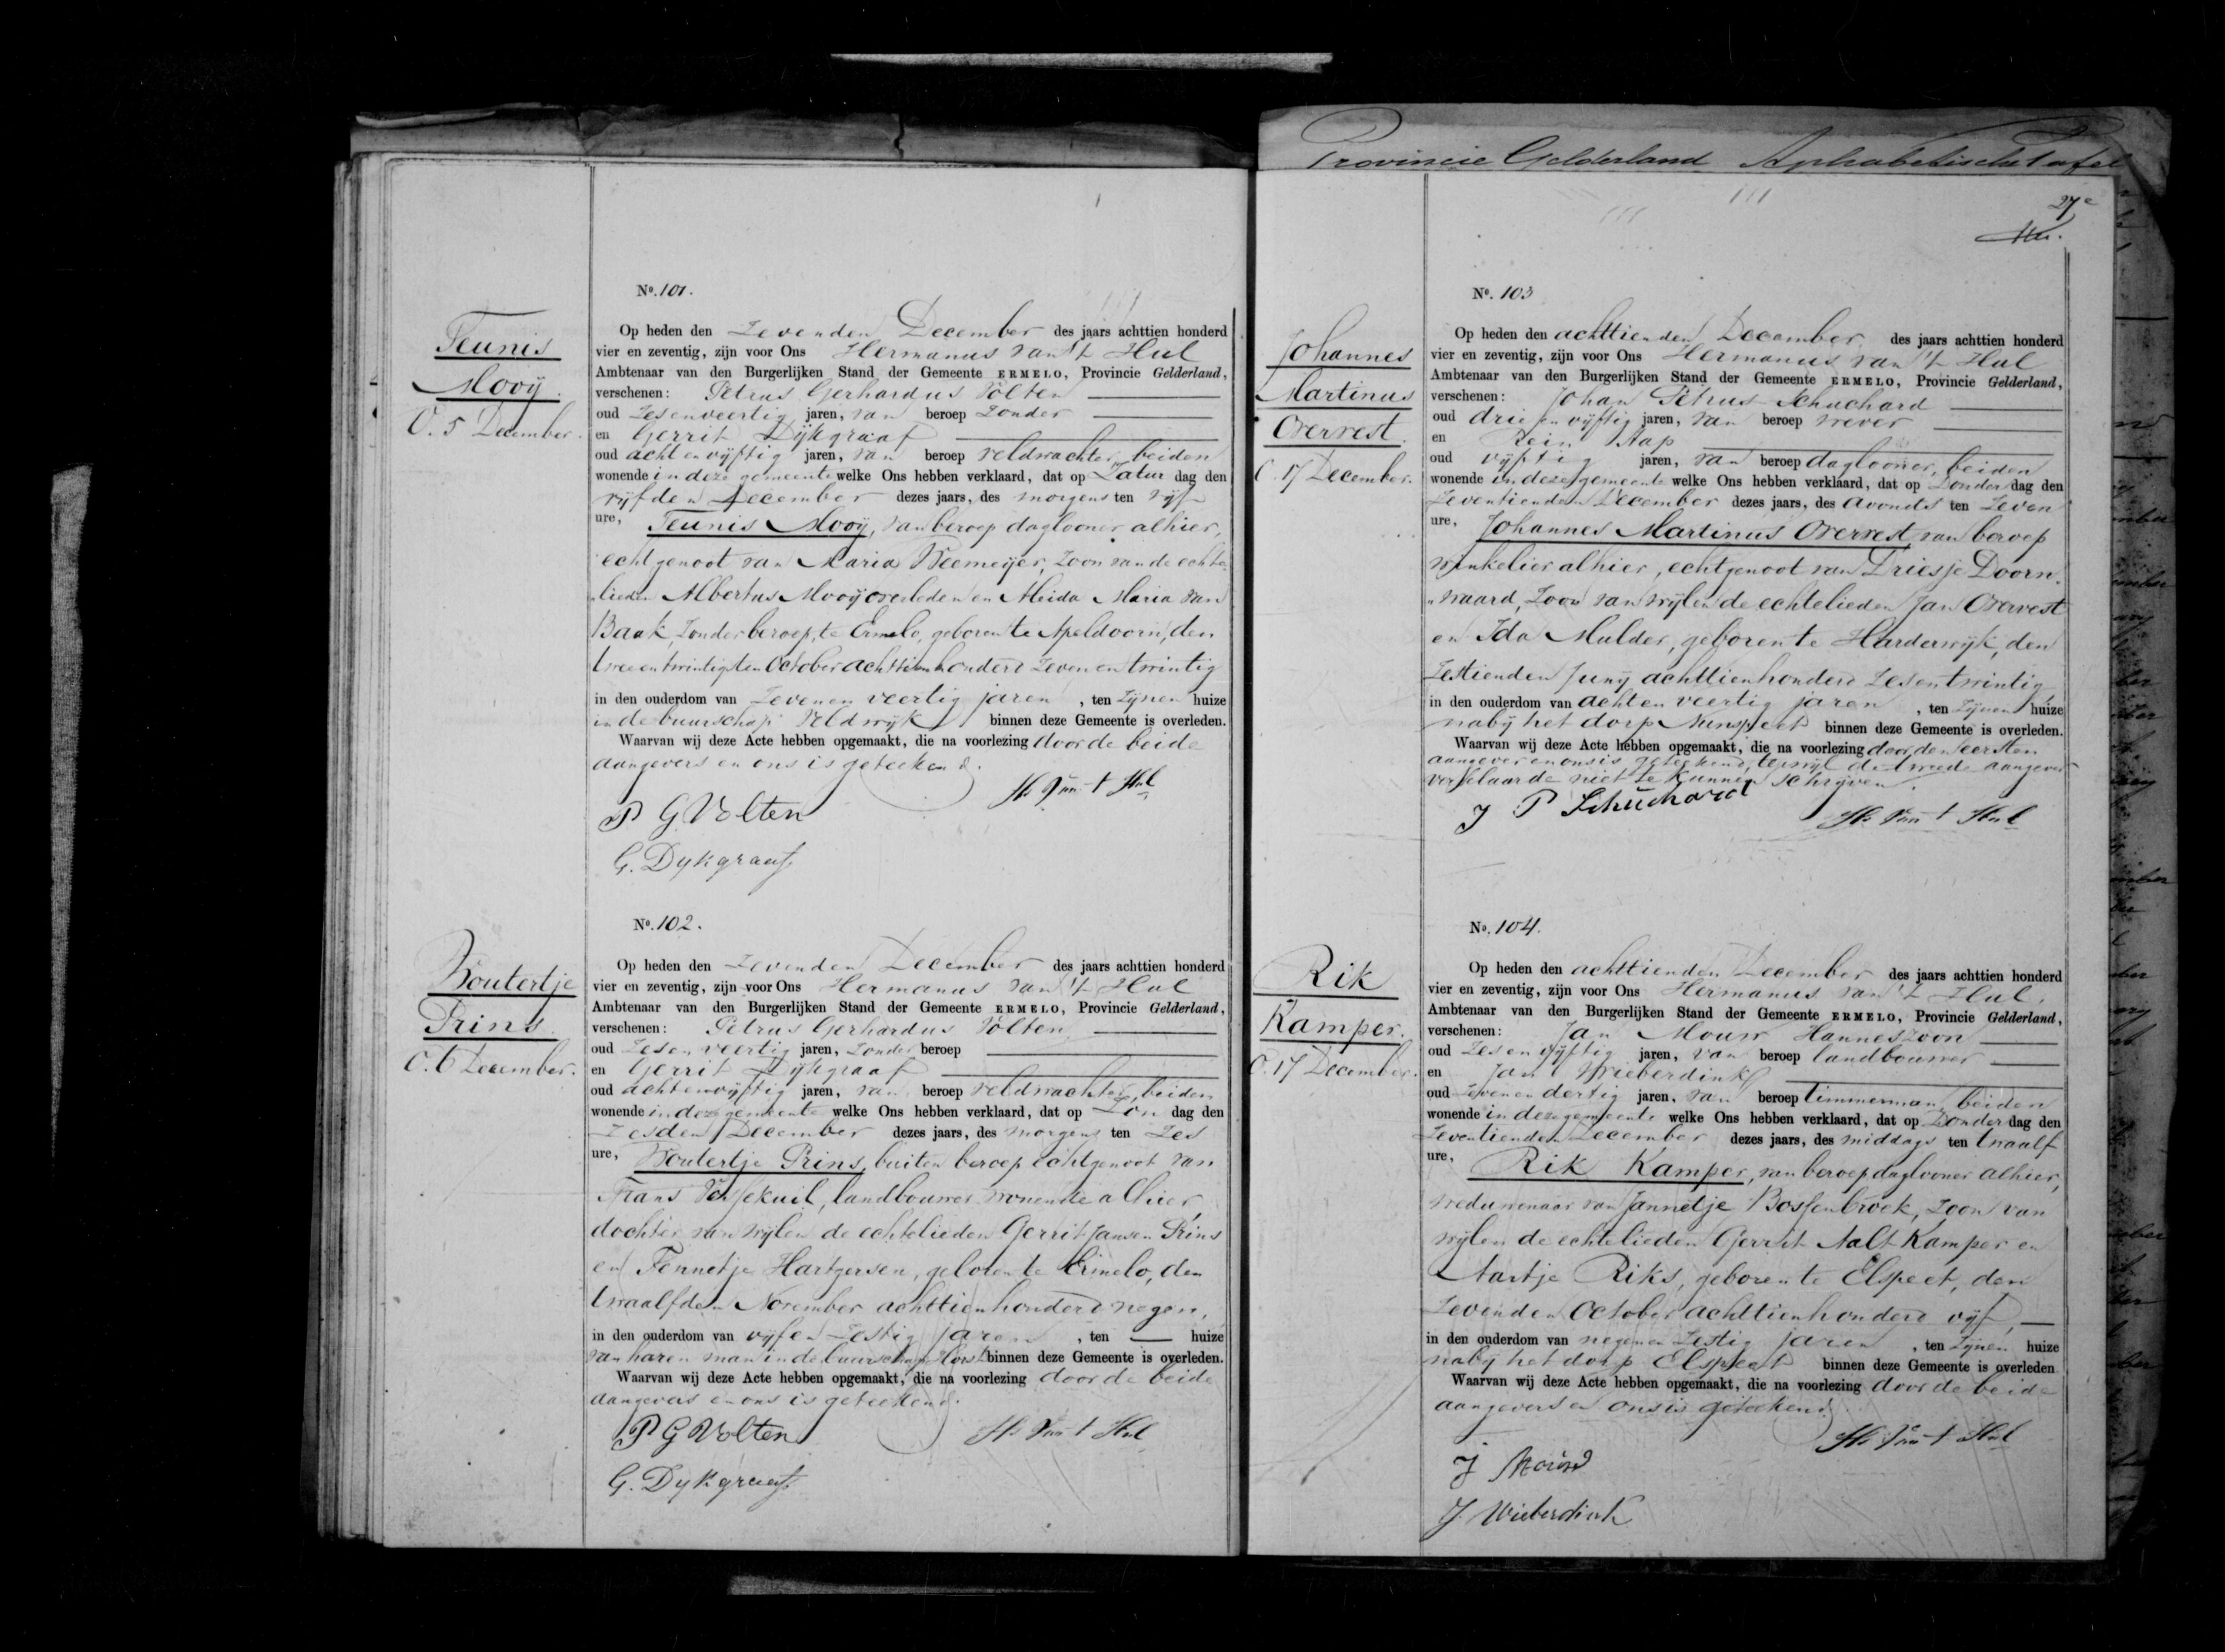 Provincie Gelderland Alphabetische Tafel
27e
No. 101.
Teunis
Mooÿ.
O. 5 December.
Op heden den Zevenden December des jaars achttien honderd
vier en zeventig, zijn voor Ons Hermanus van 't Hul
Ambtenaar van den Burgerlijken Stand der Gemeente ERMELO, Provincie Gelderland,
verschenen: Petrus Gerhardus Volten
oud Zesenveertig jaren, van beroep Zonder
en Gerrit Dÿkgraaf
oud acht en vÿftig jaren, van beroep veldwachter, beiden
wonende in deze gemeente welke Ons hebben verklaard, dat op Zatur dag den
vÿfden December dezes jaars, des morgens ten vÿf
ure, Teunis Mooÿ, van beroep daglooner alhier,
echtgenoot van Maria Weemeijer, Zoon van de echte-
lieden Albertus Mooÿ overleden en Aleida Maria van
Baak, Zonder beroep, te Ermelo, geboren te Apeldoorn, den
twee en twintigsten October achttienhonderd Zeven en twintig
in den ouderdom van Zeven en veertig jaren, ten Zÿnen huize
in de buurschap Veldwÿk binnen deze Gemeente is overleden.
Waarvan wij deze Acte hebben opgemaakt, die na voorlezing door de beide
aangevers en ons is geteekend.
H. van 't Hul
P G Volten
G. Dykgraaf
No. 102.
Woutertje
Prins
O. 6 December.
Op heden den Zevenden December des jaars achttien honderd
vier en zeventig, zijn voor Ons Hermanus van 't Hul
Ambtenaar van den Burgerlijken Stand der Gemeente ERMELO, Provincie Gelderland,
verschenen: Petrus Gerhardus Volten
oud Zesenveertig jaren, Zonder beroep
en Gerrit Dÿkgraaf
oud achtenvÿftig jaren, van beroep veldwachter, beiden
wonende in deze gemeente welke Ons hebben verklaard, dat op Zon dag den
Zesden December dezes jaars, des morgens ten Zes
ure, Woutertje Prins, buiten beroep echtgenoot van
Frans, landbouwer wonende alhier,
dochter van wÿlen de echtelieden Gerrit Jansen Prins
en Fennetje Hartgersen, geboren te Ermelo, den
twaalfden November achttienhonderd negen,
in den ouderdom van vÿfen Zestig jaren, ten — huize
van haren man in de buurschap Horst binnen deze Gemeente is overleden.
Waarvan wij deze Acte hebben opgemaakt, die na voorlezing door de beide
aangevers en ons is geteekend.
P G Volten
H. van 't Hul
G. Dykgraaf
No. 103
Johannes
Martinus
Overvest.
O. 17 December.
Op heden den achttienden December des jaars achttien honderd
vier en zeventig, zijn voor Ons Hermanus van 't Hul
Ambtenaar van den Burgerlijken Stand der Gemeente ERMELO, Provincie Gelderland,
verschenen: Johan Petrus Schuchard
oud drie en vÿftig jaren, van beroep wever
en Rein Aap
oud vÿftig jaren, van beroep daglooner, beiden
wonende in deze gemeente welke Ons hebben verklaard, dat op Donder dag den
Zeventienden December dezes jaars, des avonds ten Zeven
ure, Johannes Martinus Overvest van beroep
winkelier alhier, echtgenoot van Driesje Doorn-
waard, Zoon van wÿlen de echtelieden Jan Overvest
en Ida Mulder, geboren te Harderwÿk, den
Zestienden Junÿ achttienhonderd Zesentwintig
in den ouderdom van achten veertig jaren, ten Zÿnen huize
nabÿ het dorp Nunspeet binnen deze Gemeente is overleden.
Waarvan wij deze Acte hebben opgemaakt, die na voorlezing door den eersten
aangever en ons is geteekend, terwÿl de tweede aangever
verklaarde niet te kunnen schrÿven.
J P Schuchard
H. van 't Hul
No. 104.
Rik
Kamper.
O. 17 December.
Op heden den achttienden December des jaars achttien honderd
vier en zeventig, zijn voor Ons Hermanus van 't Hul,
Ambtenaar van den Burgerlijken Stand der Gemeente ERMELO, Provincie Gelderland,
verschenen: Jan Mouw Hanneszoon
oud Zesenvÿftig jaren, van beroep landbouwer
en Jan Wieberdink
oud Zevenendertig jaren, van beroep timmerman, beiden
wonende in deze gemeente welke Ons hebben verklaard, dat op Donder dag den
Zeventienden December dezes jaars, des middags ten twaalf
ure, Rik Kamper, van beroep daglooner alhier,
weduwenaar van Jannetje Bossenbroek, Zoon van
wÿlen de echtelieden Gerrit Aalt Kamper en
Aartje Riks, geboren te Elspeet, den
Zevenden October achttienhonderd vÿf,
in den ouderdom van negenen Zestig jaren, ten Zÿnen huize
nabÿ het dorp Elspeet binnen deze Gemeente is overleden
Waarvan wij deze Acte hebben opgemaakt, die na voorlezing door de beide
aangevers en ons is geteekend.
H. van 't Hul
J Mouw
J. Wieberdink